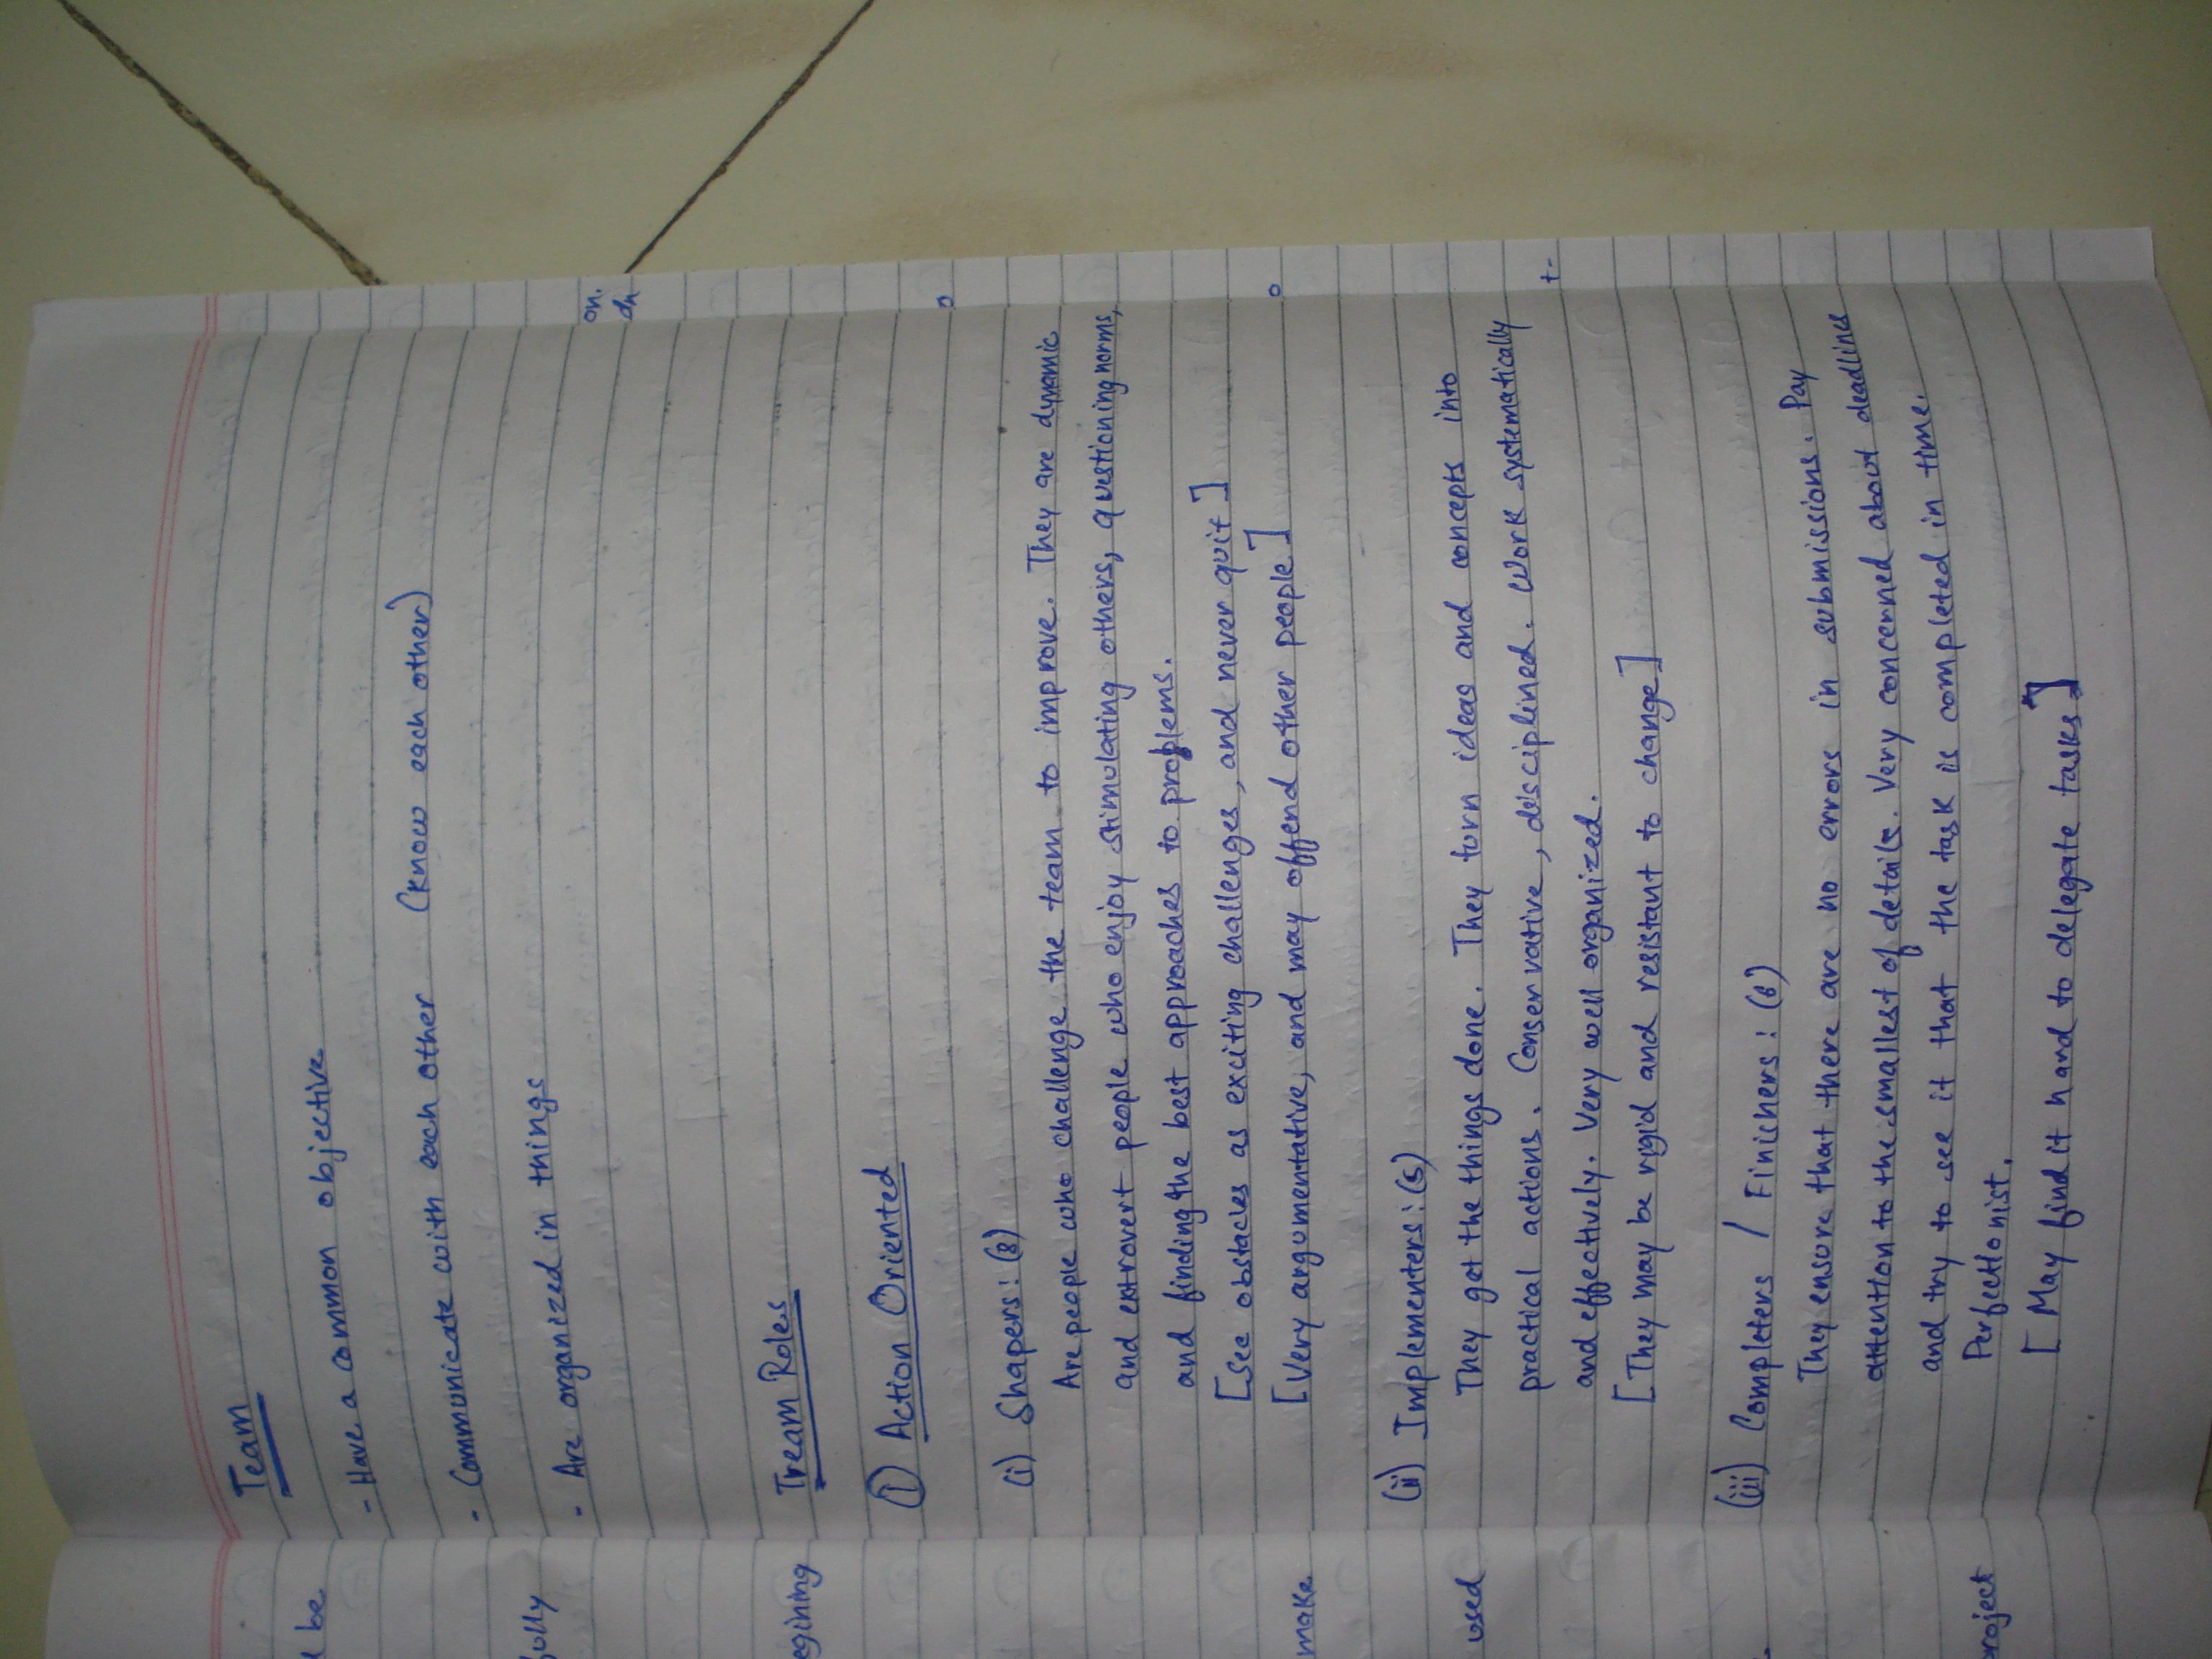 Team
- Have a common objective
- Communicate with each other (Know each other)
- Are organized in things
Tream Roles
① Action Oriented
(i) Shapers: (8)
Are people who challenge the team to improve. They are dynamic
and extrovert people who enjoy stimulating others, questioning norms,
and finding the best approaches to problems.
[See obstacles as exciting challenges, and never quit]
[Very argumentative, and may offend other people]
(ii) Implementers: (5)
They get the things done. They turn ideas and concepts into
practical actions. Conservative, disciplined. Work systematically
and effectively. Very well organized.
[They may be rigid and resistant to change]
(iii) Completers / Finichers: (6)
They ensure that there are no errors in submissions. Pay
attention to the smallest of details. Very concerned about deadlines
and try to see it that the task is completed in time.
Perfectionist.
[May find it hard to delegate tasks]
be
fully
egining
make
used
project
on.